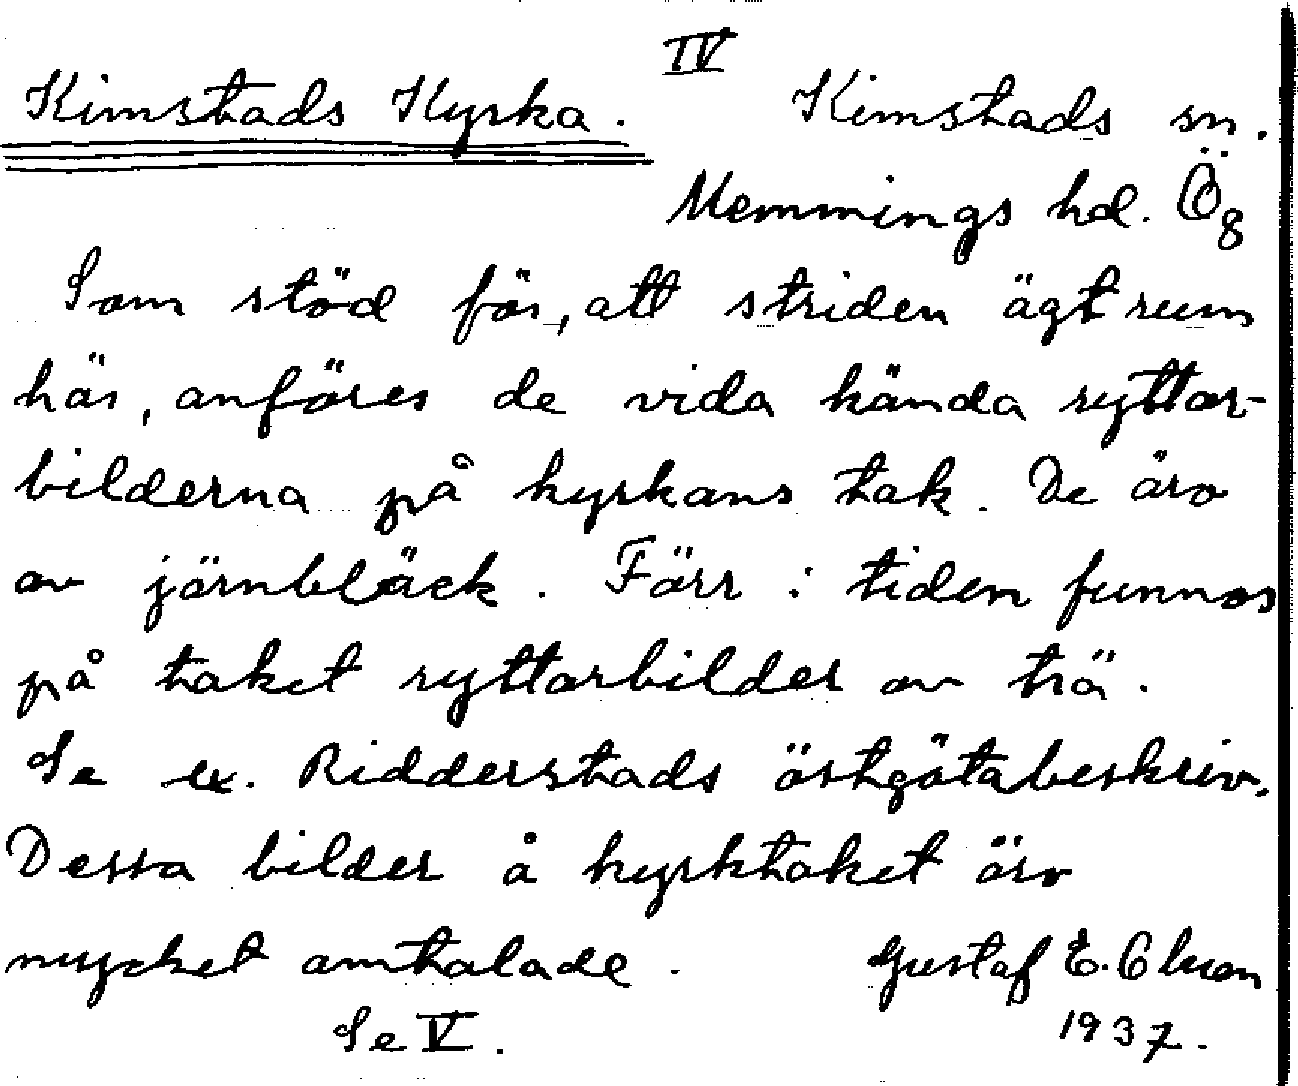 IV
Kimstads Kyrka. Kimstads sn.
Memmings hd. Ög
Som stöd för, att striden ägt rum
här, anföres de vida kända ryttar-
bilderna på kyrkans tak. De äro
av järnbläck. Förr i tiden funnos
på taket ryttarbilder av trä.
Se ex. Ridderstads östgötabeskriv.
Dessa bilder å kyrktaket äro
mycket omtalade. Gustaf E.
Se V. 1937.